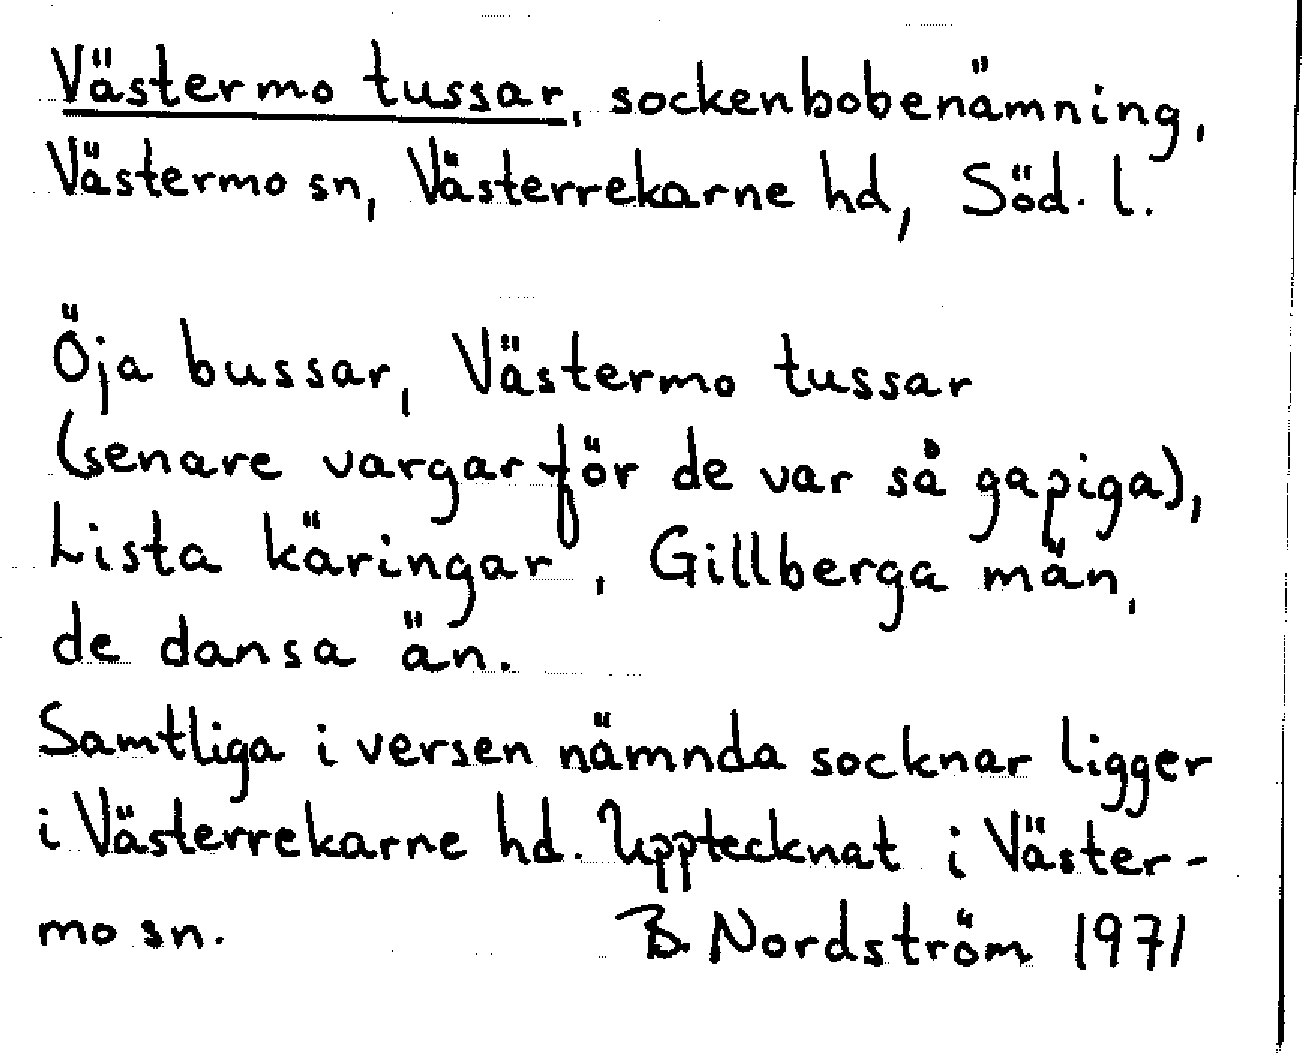 Västermo tussar, sockenbobenämning,
Västermo sn, Västerrekarne hd, Söd. l.
Öja bussar, Västermo tussar
(senare vargar för de var så gapiga),
Lista käringar, Gillberga män,
de dansa än.
Samtliga i versen nämnda socknar ligger
i Västerrekarne hd. Upptecknat i Väster-
mo sn. B. Nordström 1971